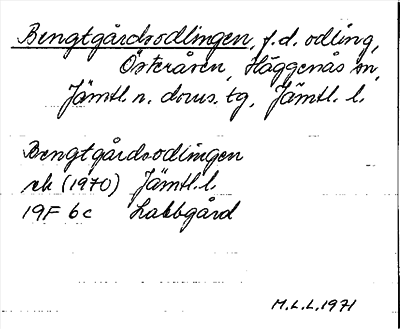 Bengtgårdsodlingen, f.d. odling,
Österåsen, Häggenås sn,
Jämtl. n. doms. tg, Jämtl. l.
Bengtgårdsodlingen
ek (1970) Jämtl. l.
19F 6c Labbgård
M.L.L. 1971